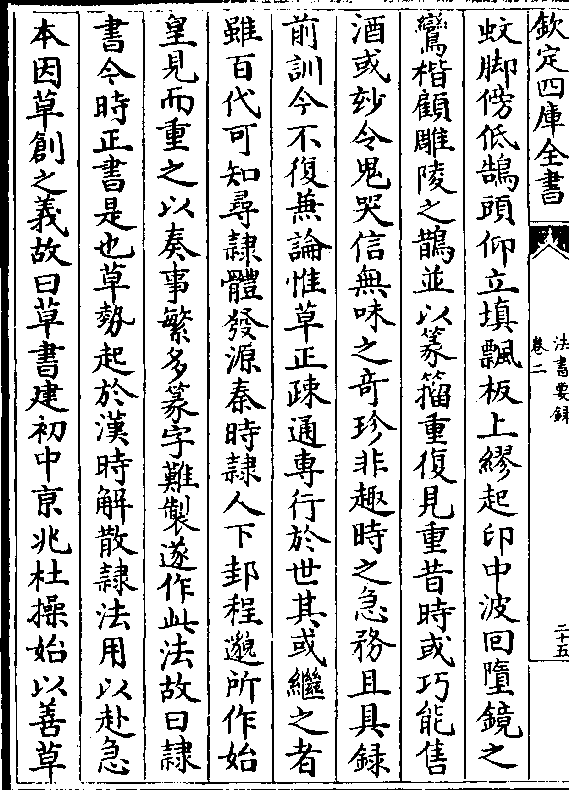 欽定四庫全書
法書要録
卷二
二十五
蚊脚傍低鵠頭仰立填飄板上繆起印中波回墮鏡之
鸞楷顧雕陵之鵲並以篆籀重復見重昔時或巧能售
酒或玅令鬼哭信無味之竒珍非趣時之急務且具録
前訓今不復兼論惟草正踈通專行於世其或繼之者
雖百代可知尋隷體發源秦時隷人下邽程邈所作始
皇見而重之以奏事繁多篆字難製遂作此法故曰隷
書今時正書是也草勢起於漢時解散隷法用以赴急
本因草創之義故曰草書建初中京兆杜操始以善草